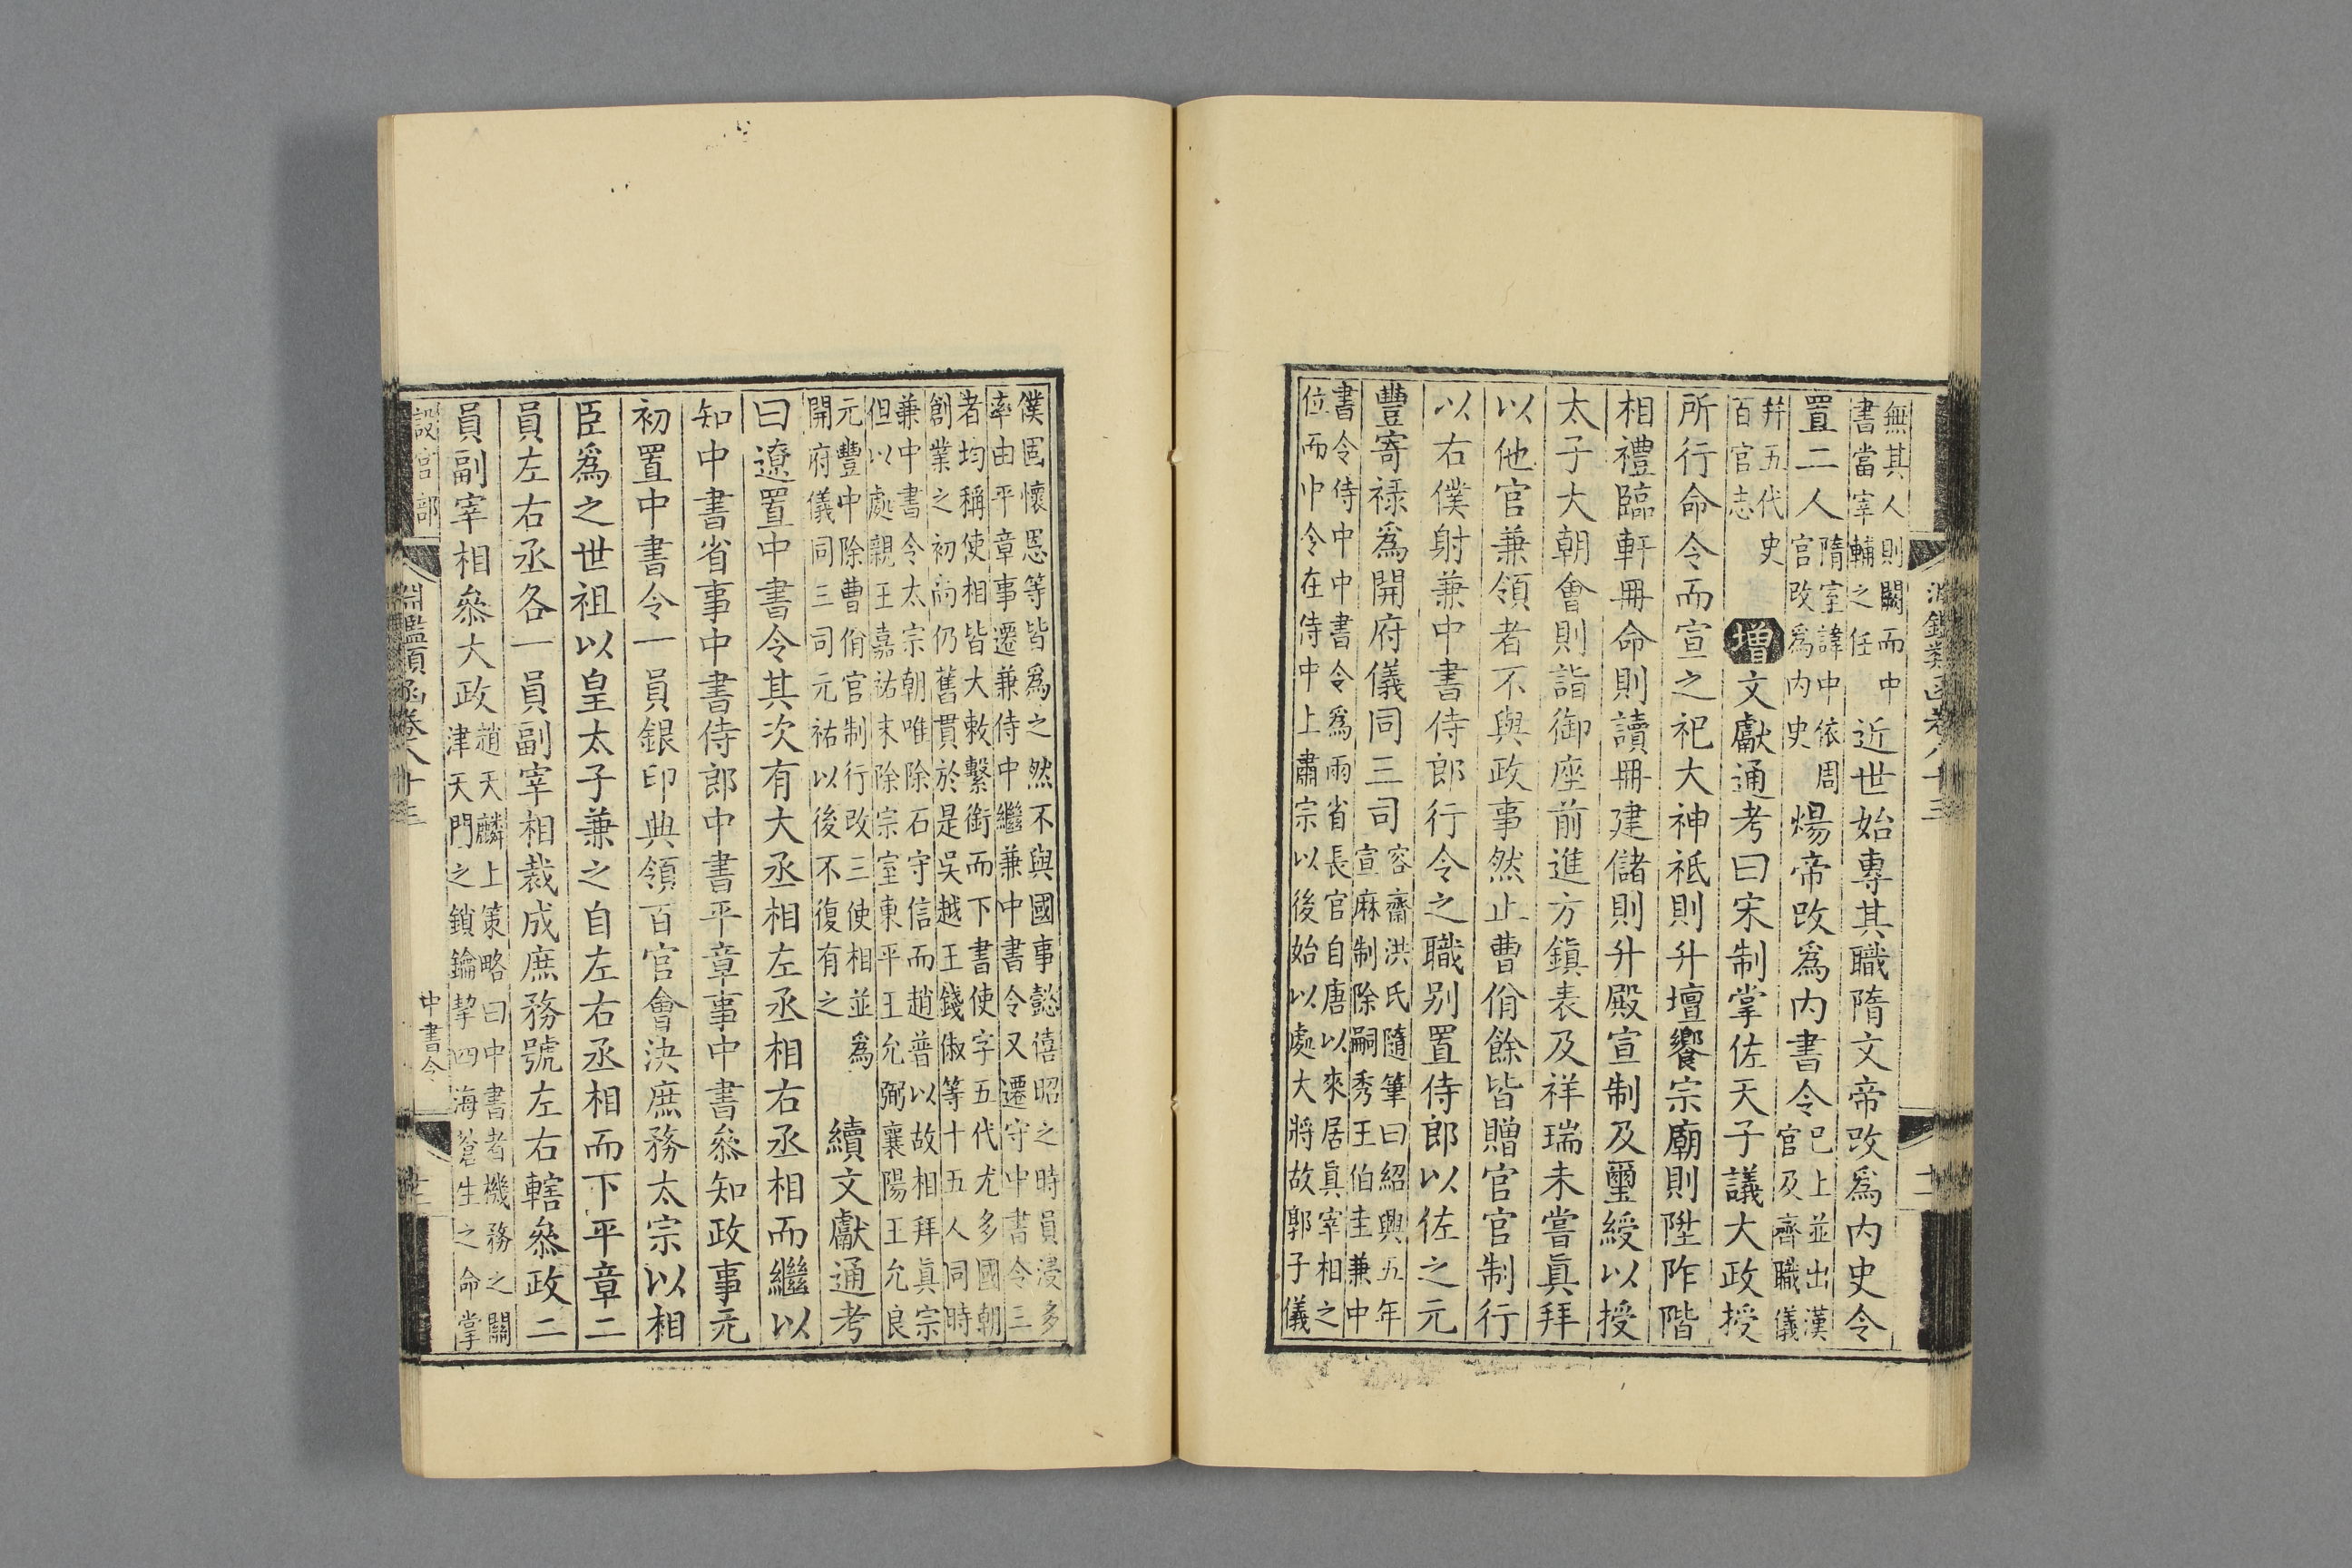 淵鑑類函卷八十三
十二
無其人則闕而中
書當宰輔之任
近世始專其職隋文帝改爲内史令
置二人
隋室諱中依周
官改爲内史
煬帝改爲内書令
已上並出漢
官及齊職儀
并五代史
百官志
增文獻通考曰宋制掌佐天子議大政授
所行命令而宣之祀大神祗則升壇饗宗廟則陞阼階
相禮臨軒冊命則讀冊建儲則升殿宣制及璽綬以授
太子大朝會則詣御座前進方鎭表及祥瑞未嘗眞拜
以他官兼領者不與政事然止曹佾餘皆贈官官制行
以右僕射兼中書侍郎行令之職別置侍郎以佐之元
豐寄祿爲開府儀同三司
容齋洪氏隨筆曰紹興五年
宣麻制除嗣秀王伯圭兼中
書令侍中中書令爲兩省長官自唐以來居眞宰相之
位而中令在侍中上肅宗以後始以處大將故郭子儀
僕固懷恩等皆爲之然不與國事懿僖昭之時員浸多
率由平章事遷兼侍中繼兼中書令又遷守中書令三
者均稱使相皆大敕繫銜而下書使字五代尤多國朝
創業之初尚仍舊貫於是吳越王錢俶等十五人同時
兼中書令太宗朝唯除石守信而趙普以故相拜眞宗
但以處親王嘉祐末除宗室東平王允弼襄陽王允良
元豐中除曹佾官制行改三使相並爲
開府儀同三司元祐以後不復有之
續文獻通考
曰遼置中書令其次有大丞相左丞相右丞相而繼以
知中書省事中書侍郎中書平章事中書叅知政事元
初置中書令一員銀印典領百官會決庶務太宗以相
臣爲之世祖以皇太子兼之自左右丞相而下平章二
員左右丞各一員副宰相裁成庶務號左右轄叅政二
員副宰相叅大政
趙天麟上策略曰中書者機務之關
津天門之鎖鑰挈四海蒼生之命掌
設官部
淵鑑類函卷八十三
中書令